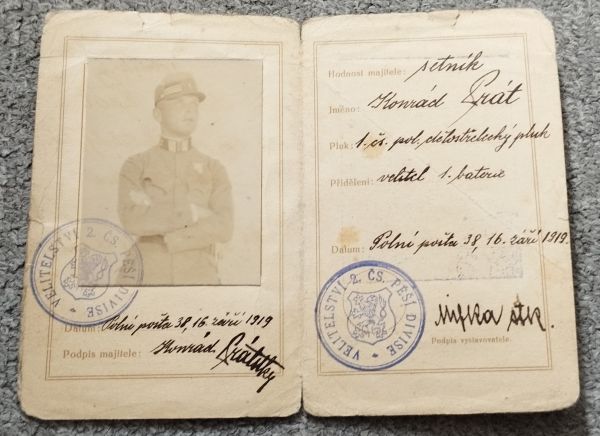 VELITELSTVÍ 2. ČS. PĚŠÍ DIVISE
Datum: Polní pošta 38, 16. září 1919
Podpis majitele: Konrád
Hodnost majitele: setník
Jméno: Konrád
Pluk: 1. čs. pol. dělostřelecký pluk
Přidělení: velitel 1. baterie
Datum: Polní pošta 38, 16. září 1919.
VELITELSTVÍ 2. ČS. PĚŠÍ DIVISE
Podpis vystavovatele.